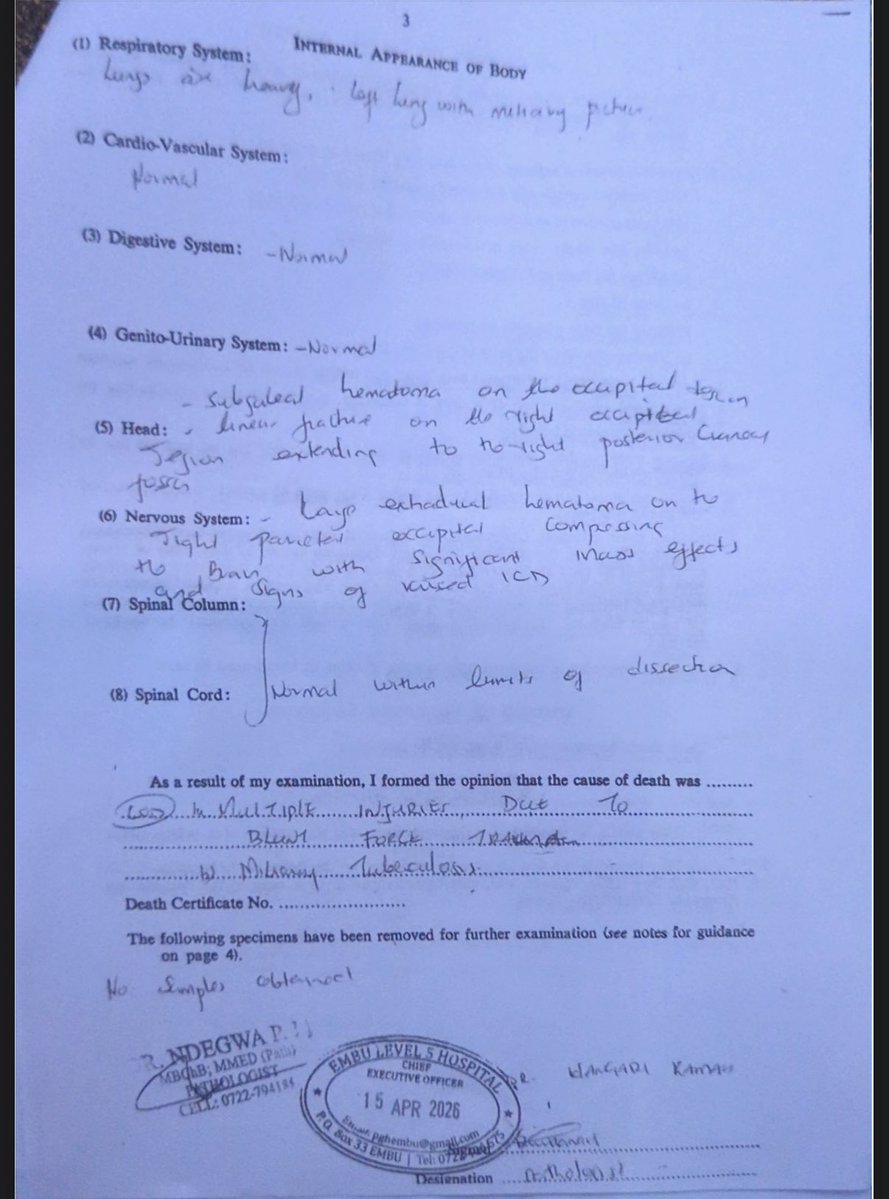 3
INTERNAL APPEARANCE OF BODY
(1) Respiratory System:
Lungs are heavy, left lung with miliary picture
(2) Cardio-Vascular System:
Normal
(3) Digestive System: - Normal
(4) Genito-Urinary System: - Normal
- Subgaleal hematoma on the occipital region
(5) Head: - linear fracture on the right occipital
region extending to the right posterior cranial
fossa
(6) Nervous System: - Large extradural hematoma on the
right parieto occipital compressing
the Brain with significant mass effects
and signs of raised ICP
(7) Spinal Column:
(8) Spinal Cord: Normal within limits of dissection
As a result of my examination, I formed the opinion that the cause of death was .........
MULTIPLE INJURIES DUE TO
BLUNT FORCE TRAUMA
Miliary Tuberculosis.
Death Certificate No. ........................
The following specimens have been removed for further examination (see notes for guidance
on page 4).
No Samples obtained
NDEGWA P.
MBChB; MMED (Path)
PATHOLOGIST
CELL: 0722-794184
EMBU LEVEL 5 HOSPITAL
CHIEF
EXECUTIVE OFFICER
15 APR 2026
Email: pghembu@gmail.com
P.O. Box 33 EMBU | Tel: 072
DR. WANGARI KAMAU
Signed
Designation Pathologist